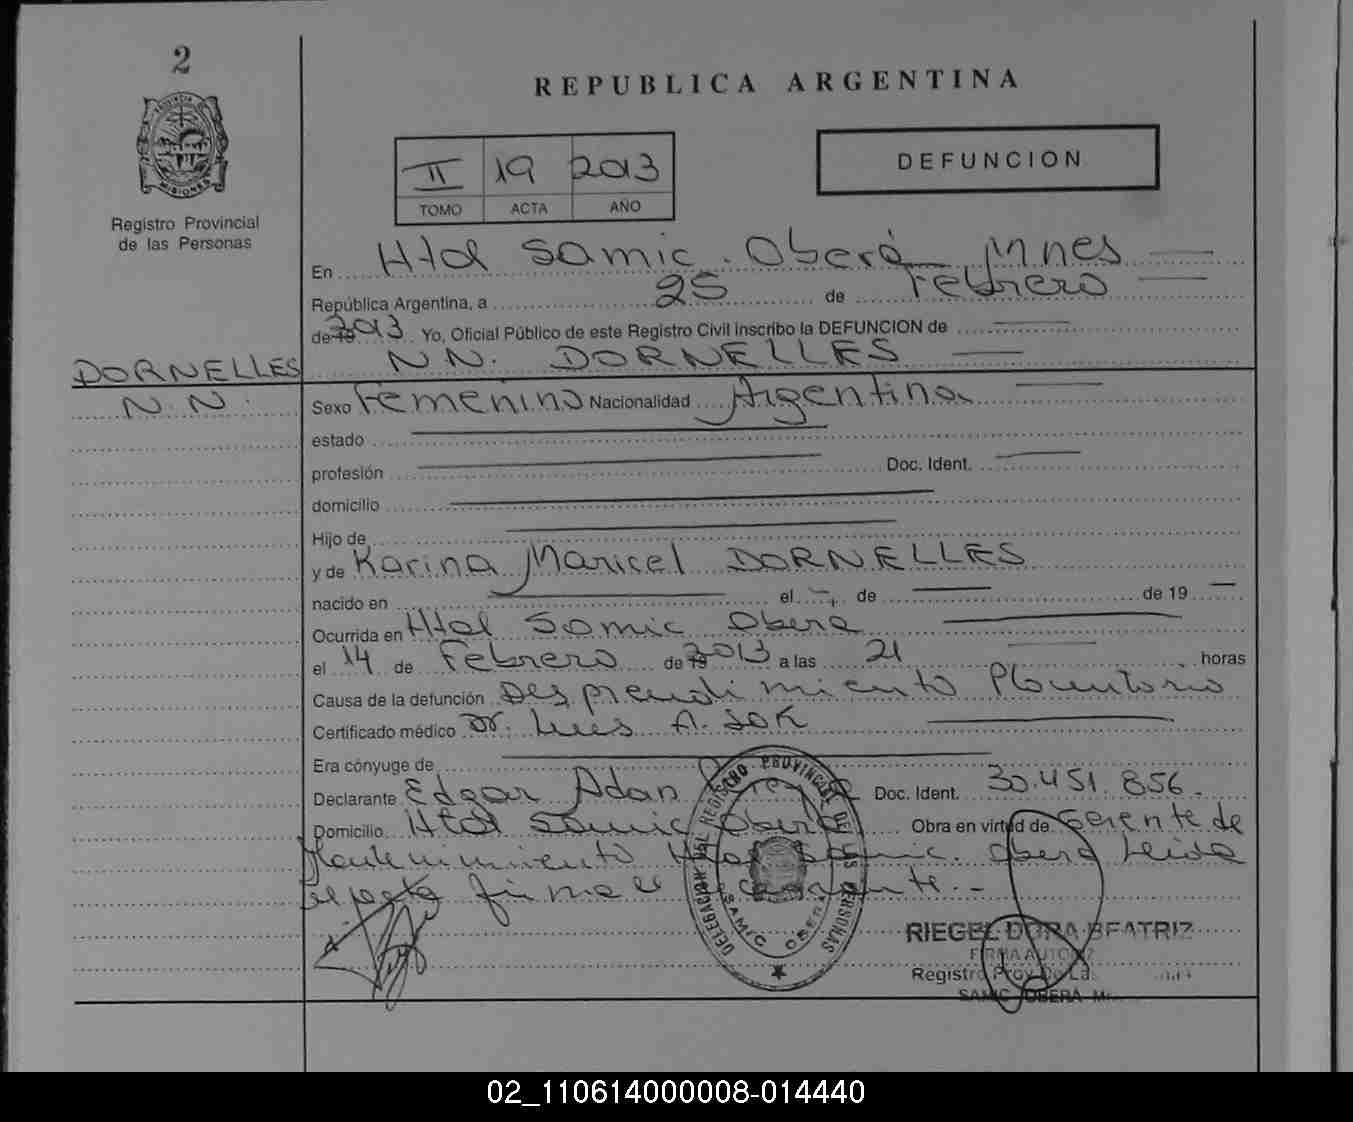 2
PROVINCIA DE
MISIONES
Registro Provincial
de las Personas
REPUBLICA ARGENTINA
II 19 2013
TOMO ACTA AÑO
DEFUNCION
En Htal Samic. Oberá Mnes
República Argentina, a 25 de Febrero
de 19 2013 Yo, Oficial Público de este Registro Civil inscribo la DEFUNCION de
N.N. DORNELLES
DORNELLES
N. N.
Sexo Femenino Nacionalidad Argentina
estado
profesión Doc. Ident.
domicilio
Hijo de
y de Karina Maricel DORNELLES
nacido en el de de 19
Ocurrida en Htal Samic Obera
el 14 de Febrero de 19 2013 a las 21 horas
Causa de la defunción Desprendimiento Placentario
Certificado médico Dr. Luis A. SOK
Era cónyuge de
Declarante Edgar Adan Doc. Ident. 30.451.856.
Domicilio Htal Samic Obera Obra en virtud de Gerente de
Mantenimiento Htal Samic. Obera Leida
el acta firma el
DELEGACION DEL REGISTRO PROVINCIAL DE LAS PERSONAS
SAMIC OBERA
RIEGEL DORA BEATRIZ
FIRMA
Registro Prov. De La
SAMIC OBERA
02_110614000008-014440